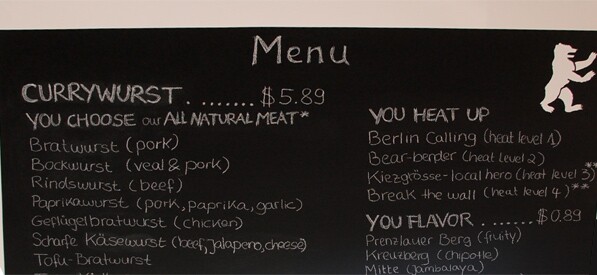 Menu
CURRYWURST . ........ $5.89
YOU CHOOSE our ALL NATURAL MEAT*
Bratwurst (pork)
Bockwurst (veal & pork)
Rindswurst (beef)
Paprikawurst (pork, paprika, garlic)
Geflügelbratwurst (chicken)
Scharfe Käsewurst (beef, jalapeno, cheese)
Tofu-Bratwurst
YOU HEAT UP
Berlin Calling (heat level 1)
Bear-bender (heat level 2)
Kiezgrösse-local hero (heat level 3)**
Break the wall (heat level 4)**
YOU FLAVOR ....... $0.89
Prenzlauer Berg (fruity)
Kreuzberg (chipotle)
Mitte (Jambalaya)